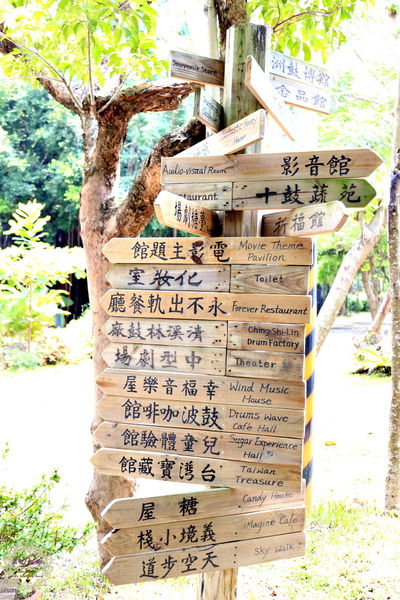 Souvenir Store
洲鼓博館
念品館
Audio-Visual Room 影音館
Restaurant 十鼓蔬苑
夢糖劇場 祈福館
電影主題館 Movie Theme Pavilion
化妝室 Toilet
永不出軌餐廳 Forever Restaurant
清溪林鼓廠 Ching Shi-Lin Drum Factory
中型劇場 Theater
幸福音樂屋 Wind Music House
鼓波咖啡館 Drums Wave Café Hall
兒童體驗館 Sugar Experience Hall
台灣寶藏館 Taiwan Treasure
糖屋 Candy House
義境小棧 iMagine Cafe
天空步道 Sky Walk